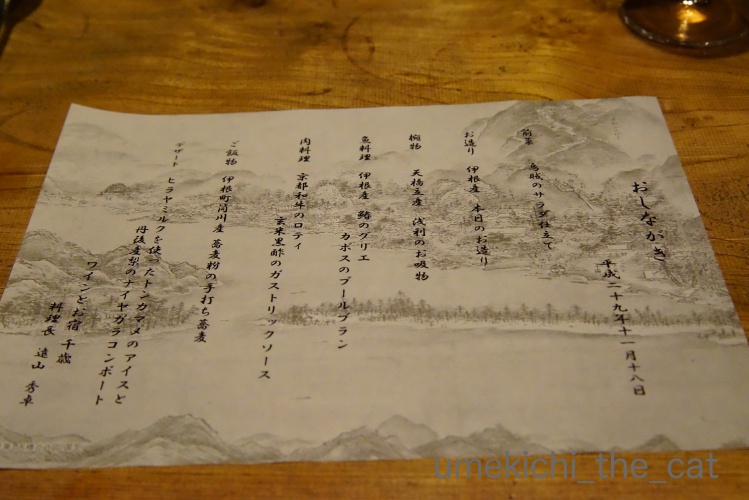 おしながき
平成二十九年十一月十八日
前菜 烏賊のサラダ仕立て
お造り 伊根産 本日のお造り
椀物 天橋立産 浅利のお吸物
魚料理 伊根産 鰆のグリエ
カボスのブールブラン
肉料理 京都和牛のロティ
玄米黒酢のガストリックソース
ご飯物 伊根町筒川産 蕎麦粉の手打ち蕎麦
デザート ヒラヤミルクを使ったトンカマメのアイスと
丹後産梨のナイヤガラコンポート
ワインとお宿 千歳
料理長 遠山 秀卓
umekichi_the_cat